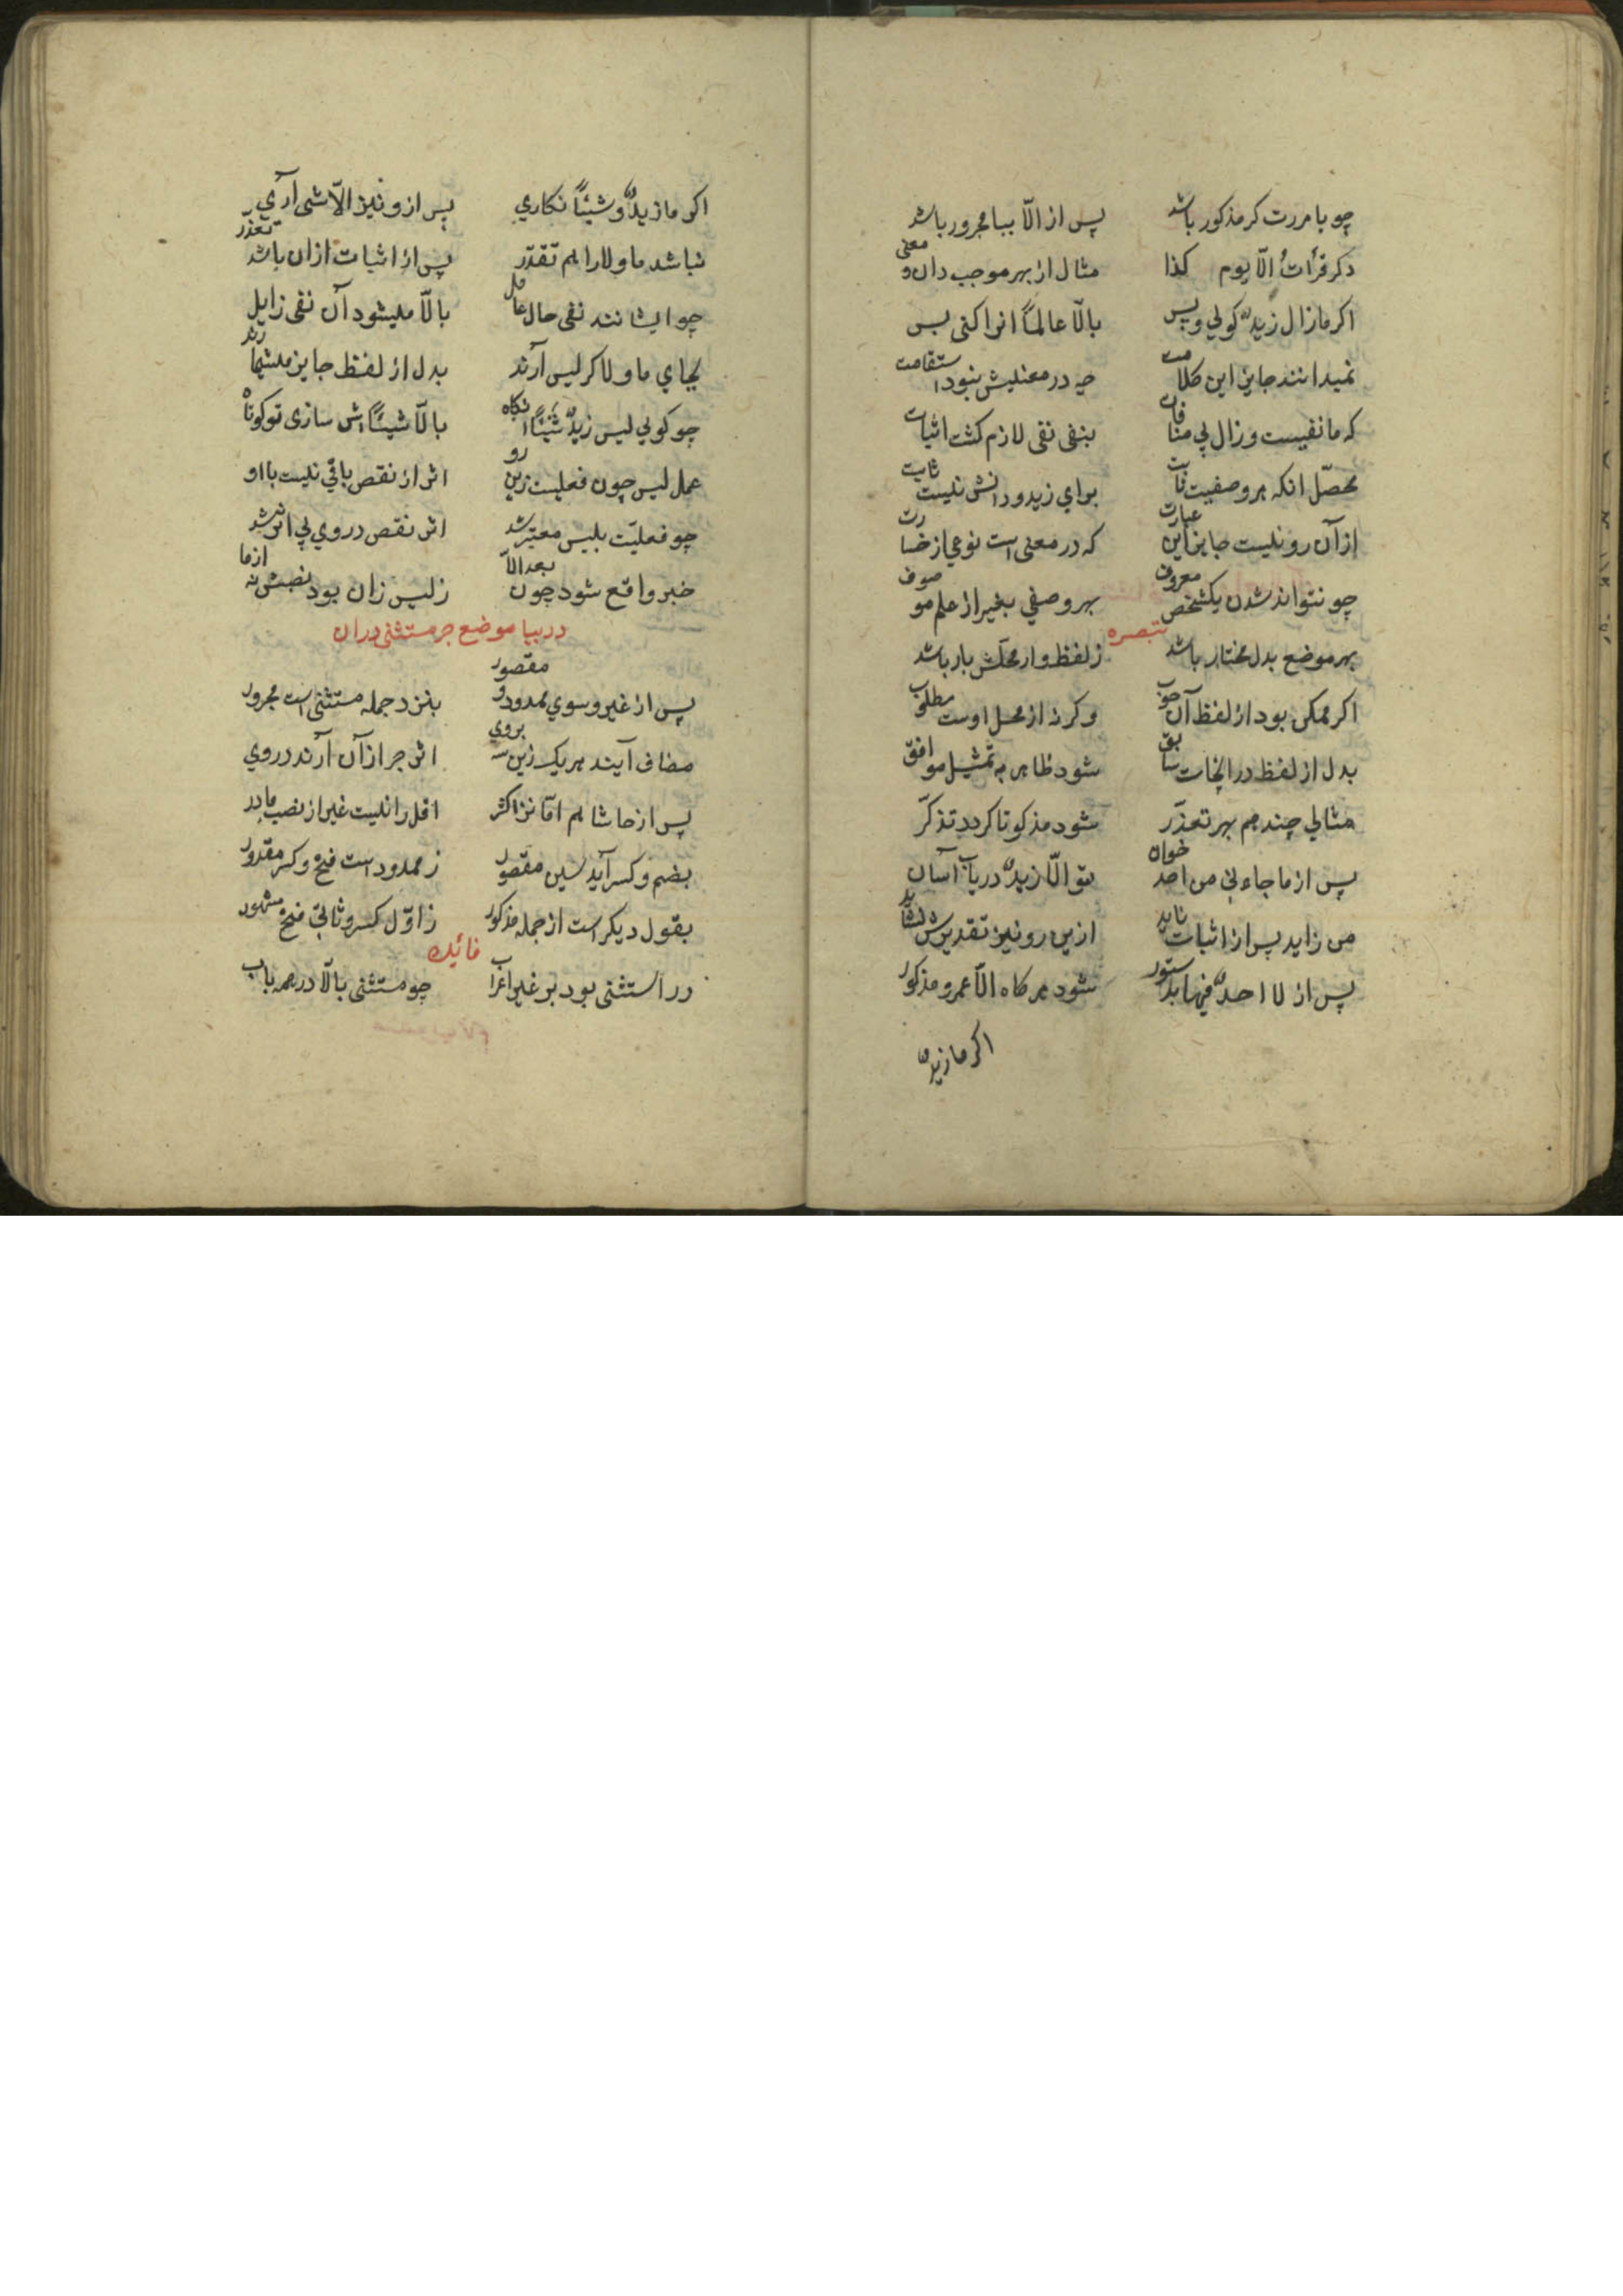 چو با مررت کر مذکور باشد پس از الّا ببا مجرور باشد
دکر قرأتُ الّا یوم کذا مثال از بهر موجب دان و معنی
اکر مازال زیدٌ کوئی و پس بالّا عالمًا انرا کنی بس
نمیدانند جایز این کلامت چه در معنیش بنود استقامت
که ما نفیست و زال پی منافات بنفی نفی لازم کشت اثبات
محصّل انکه هر وصفیت ثابت برای زید و دانش نیست ثابت
از آن رو نیست جایز این عبارت که در معنی است نوعی از خسارت
چو نتواند شدن یکشخص معروف بهر وصفی بغیر از علم موصوف
تبصره
بهر موضع بدل مختار باشد ز لفظ و از محلّش بار باشد
اکر ممکن بود از لفظ آن خوب وکرنه از محل اوست مطلوب
بدل از لفظ در انحات سابق شود ظاهر به تمثیل موافق
مثالی چند هم بهر تعذّر شود مذکو تا کردد تذکّر
پس از ما جاءنی من احد خوان تو الّا زیدٌ دریاب آسان
من زاید پس از اثبات ناید ازین رو نیز تقدیرش نشاید
پس از لا احدٌ فیها بدستور شود هرکاه الّا عمرو مذکور
اکر ما زیدٌ
اکر ما زیدٌ و شیئًا نکاری پس ازو نیز الّا شی آری
نباشد ما و لا را هم تقدّر پس از اثبات ازان باشد تعذّر
چو ایشانند نفی حال عامل بالّا میشود آن نفی زایل
بجای ما و لا کر لیس آرند بدل از لفظ جایز میشمارند
چو کوئی لیس زیدٌ شیئًا انکاه بالّا شیئًا اش سازی تو کوتاه
عمل لیس چون فعلیت زین رو اثر از نقص باقی نیست با او
چو فعلیّت بلیس معتبر شد اثر نقص در وی بی اثر شد
خبر واقع شود چون بعد الّا ز لیس زان بود نصبش نه از ما
در بیا موضع جر مستثنی دران
پس از غیر و سوی ممدود و مقصور بنزد جمله مستثنی است مجرور
مضاف آیند هر یک زین سه بروی اثر جر از آن آرند در وی
پس از حاشا هم امّا نزد اکثر اقل را نیست غیر از نصب مادر
بضم و کسر آید سین مقصور ز ممدود است فتح و کسر مقدور
بقول دیکر است از جمله مذکور ز اوّل کسر و ثانی فتح مشهور
فائیده
در استثنی بود بر غیر اعراب چو مستثنی بالّا در همه باب